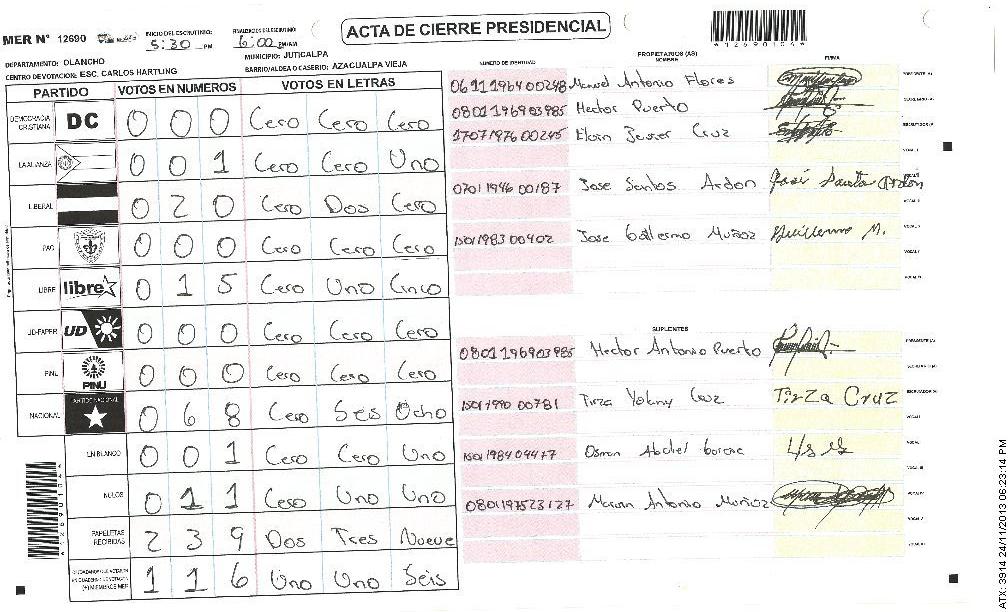 ACTA DE CIERRE PRESIDENCIAL
MER N° 12690
INICIO DEL ESCRUTINIO: 5:30 PM
FINALIZACION DEL ESCRUTINIO: 6:00 PM/AM
*12690104*
DEPARTAMENTO: OLANCHO
MUNICIPIO: JUTICALPA
CENTRO DE VOTACION: ESC. CARLOS HARTUNG
BARRIO/ALDEA O CASERIO: AZACUALPA VIEJA
PARTIDO VOTOS EN NUMEROS VOTOS EN LETRAS
DEMOCRACIA CRISTIANA DC 0 0 0 Cero Cero Cero
LA ALIANZA 0 0 1 Cero Cero Uno
LIBERAL 0 2 0 Cero Dos Cero
PAC 0 0 0 Cero Cero Cero
LIBRE libre 0 1 5 Cero Uno Cinco
UD-FAPER UD 0 0 0 Cero Cero Cero
PINU PINU 0 0 0 Cero Cero Cero
NACIONAL PARTIDO NACIONAL 0 6 8 Cero Seis Ocho
EN BLANCO 0 0 1 Cero Cero Uno
NULOS 0 1 1 Cero Uno Uno
PAPELETAS RECIBIDAS 2 3 9 Dos Tres Nueve
CIUDADANOS QUE VOTARON EN CUADERNO DE VOTACION (+) MIEMBROS MER 1 1 6 Uno Uno Seis
PROPIETARIOS (AS)
NUMERO DE IDENTIDAD NOMBRE FIRMA
0611196400248 Manuel Antonio Flores
0801196903985 Hector Puerto
1707197600245 Cruz
0701194600187 Jose Santos Ardon José Santos Ardon
1501198300402 Jose Guillermo Muñoz Guillermo M.
SUPLENTES
0801196903985 Hector Antonio Puerto
1501199000781 Tirza Yolany Cruz Tirza Cruz
1501198404477 Osman
0801197523127 Antonio Muñoz
*12690104*
ATX: 3914 24/11/2013 06:23:14 PM